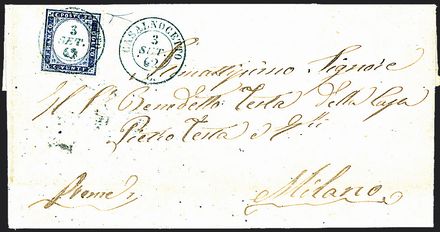 FRANCO POSTE BOLLO
3
SET.
62
CASALNOCETO
3
SET.
62
Ornatissimo Signore
Il Sr. Benedetto Testa della Casa
Pietro Testa e Flli
Preme
Milano